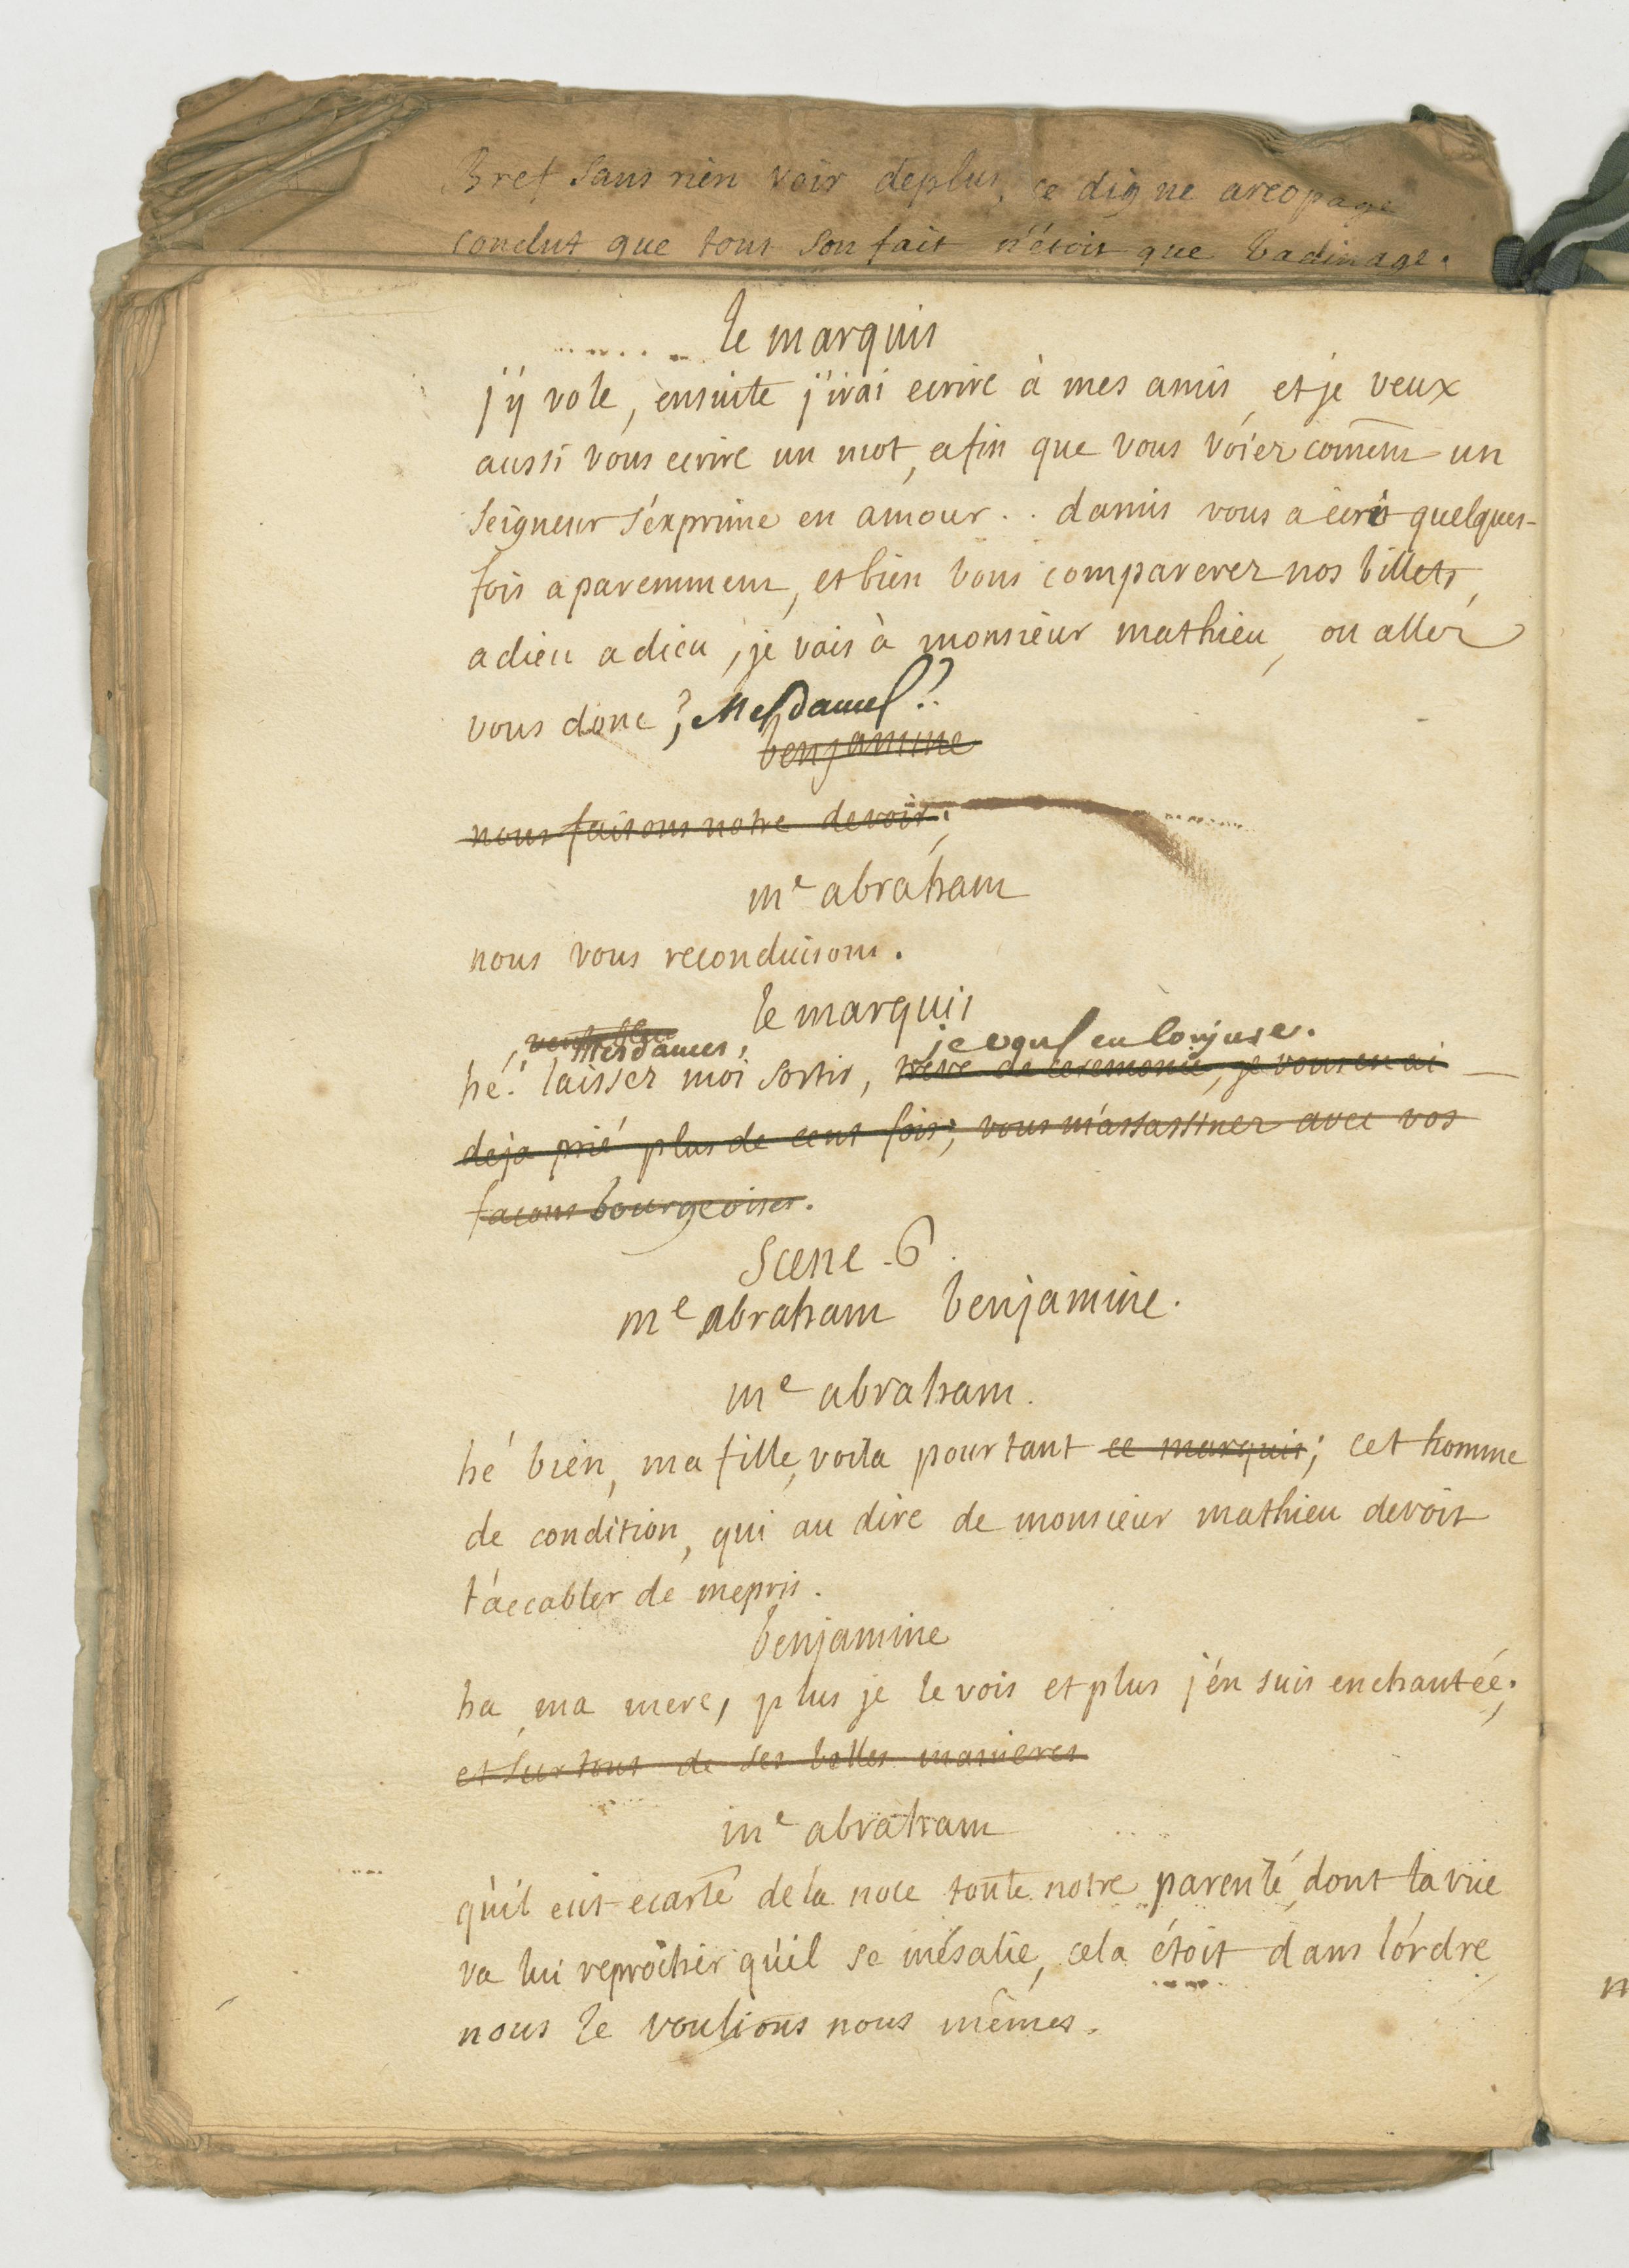 Bref sans rien voir deplus, ce digne areopage
conclut que tout son fait n'étoit que badinage.
le marquis
j'y vole, ensuite j'irai ecrire à mes amis, et je veux
aussi vous ecrire un mot, afin que vous voiez comment un
seigneur s'exprime en amour .. damis vous a ecrit quelques-
fois aparemment, et bien vous comparerez nos billets,
adieu adieu, je vais à monsieur mathieu, ou allez
vous donc ? Mesdames ??
benjamine
nous faisons notre devoir.
me abraham
nous vous reconduisons.
le marquis
Mesdames, je vous en conjure.
hé! laissez moi sortir, treve de ceremonie, je vous en ai
deja prié plus de cent fois; vous m'assassinez avec vos
facons bourgeoises.
Scene 6.
me abraham benjamine.
me abraham.
hé bien, ma fille, voila pourtant ce marquis; cet homme
de condition, qui au dire de monsieur mathieu devoit
t'accabler de mepris.
benjamine
ha, ma mere, plus je le vois et plus j'en suis enchantée;
et surtout de ses belles manieres
me abraham
qu'il eut ecarté de la noce toute notre parenté, dont la vüe
va lui reprocher qu'il se mésalie, cela étoit dans l'ordre
nous le voulions nous mêmes.